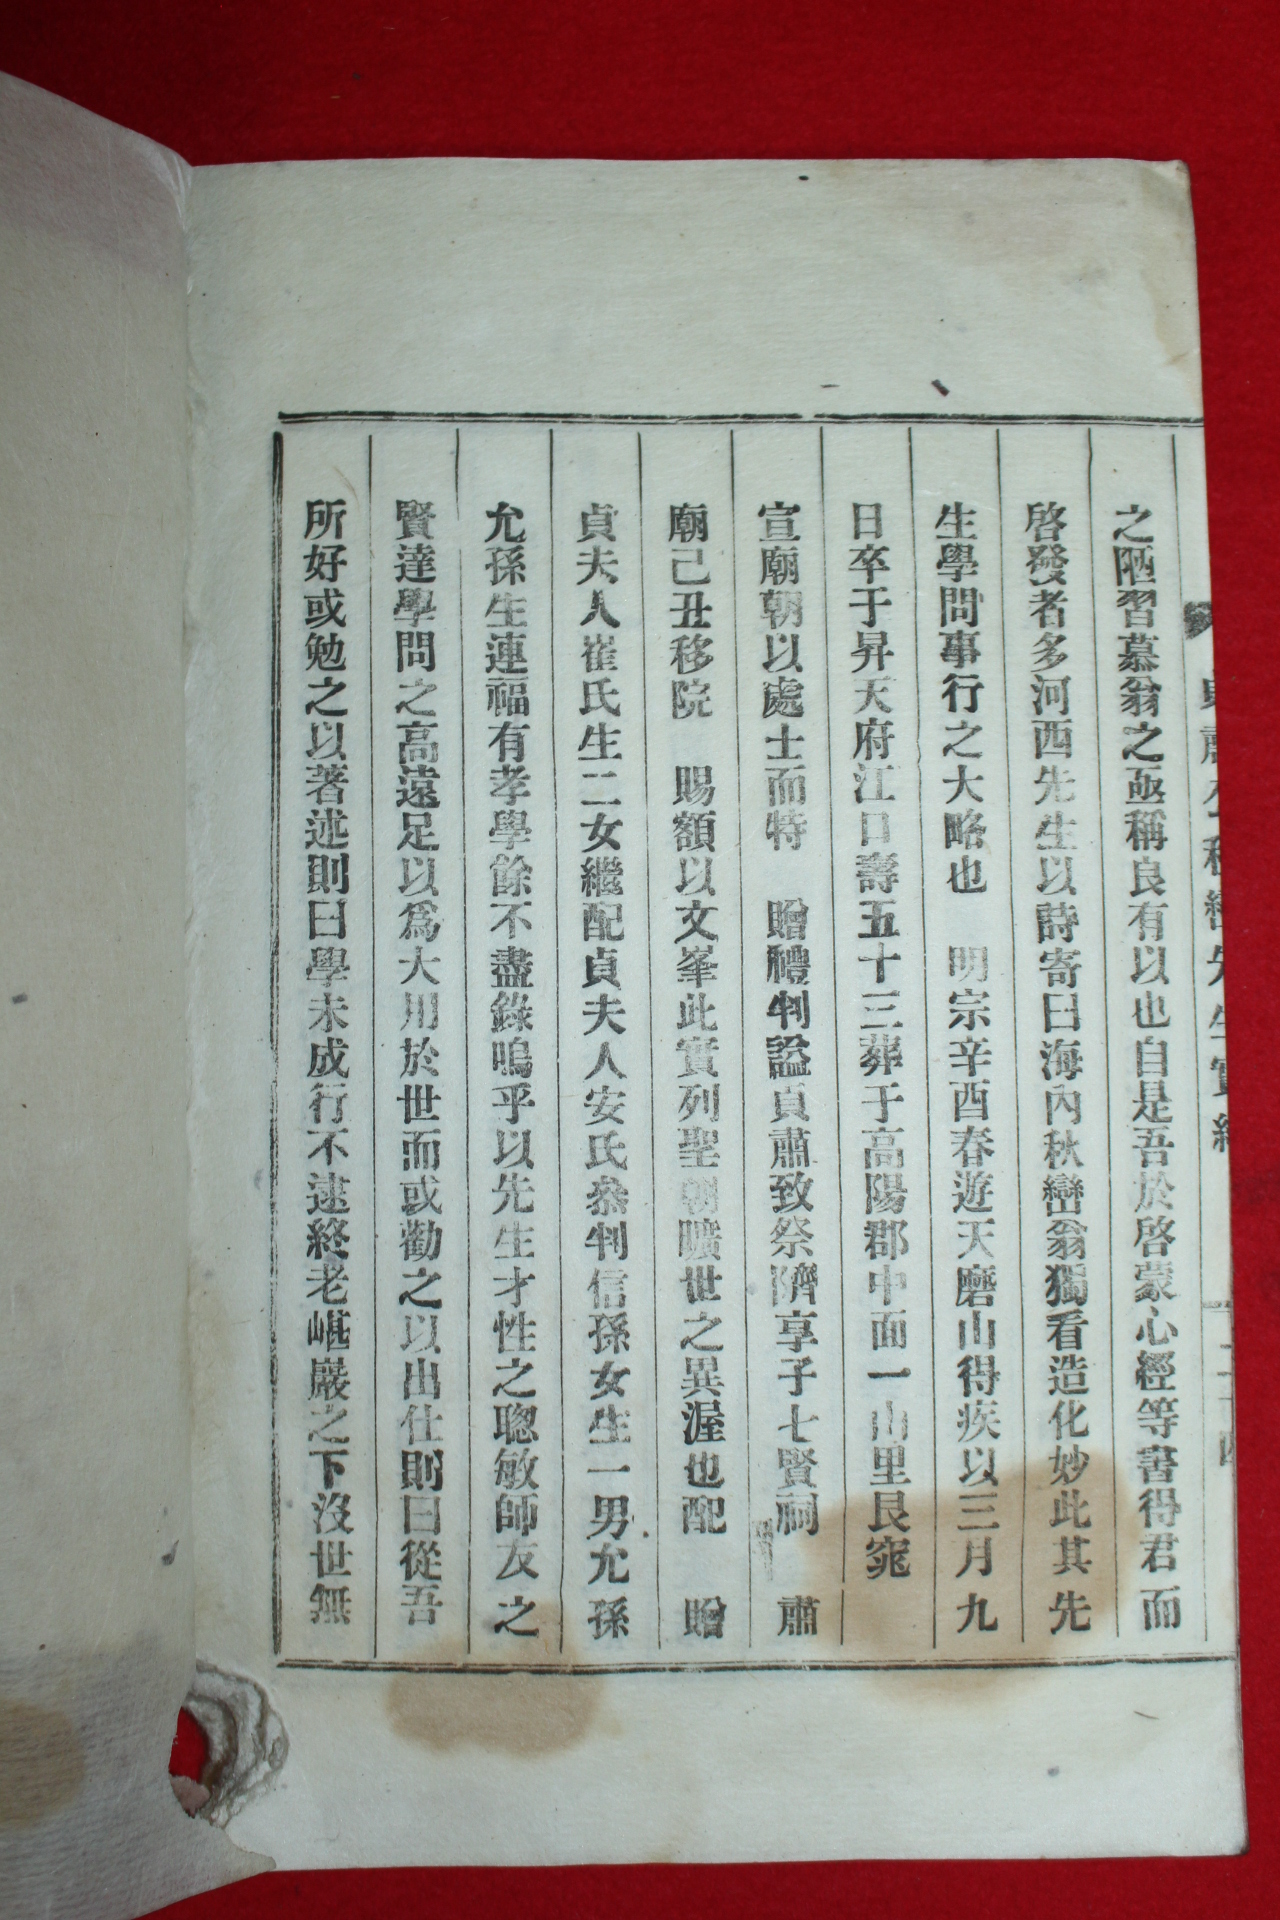 之陋習慕翁之亟稱良有以也自是吾於啓蒙心經等書得君而
啓發者多河西先生以詩寄曰海內秋巒翁獨看造化妙此其先
生學問事行之大略也 明宗辛酉春遊天磨山得疾以三月九
日卒于昇天府江口壽五十三葬于高陽郡中面一山里艮窕
宣廟朝以處士而特 贈禮判謚貞肅致祭隮享子七賢祠 肅
廟己丑移院 賜額以文峯此實列聖朝曠世之異渥也配 贈
貞夫人崔氏生二女繼配貞夫人安氏叅判信孫女生一男允孫
允孫生連福有孝學餘不盡錄嗚乎以先生才性之聰敏師友之
賢達學問之高遠足以爲大用於世而或勸之以出仕則曰從吾
所好或勉之以著述則曰學未成行不逮終老嵁巖之下沒世無